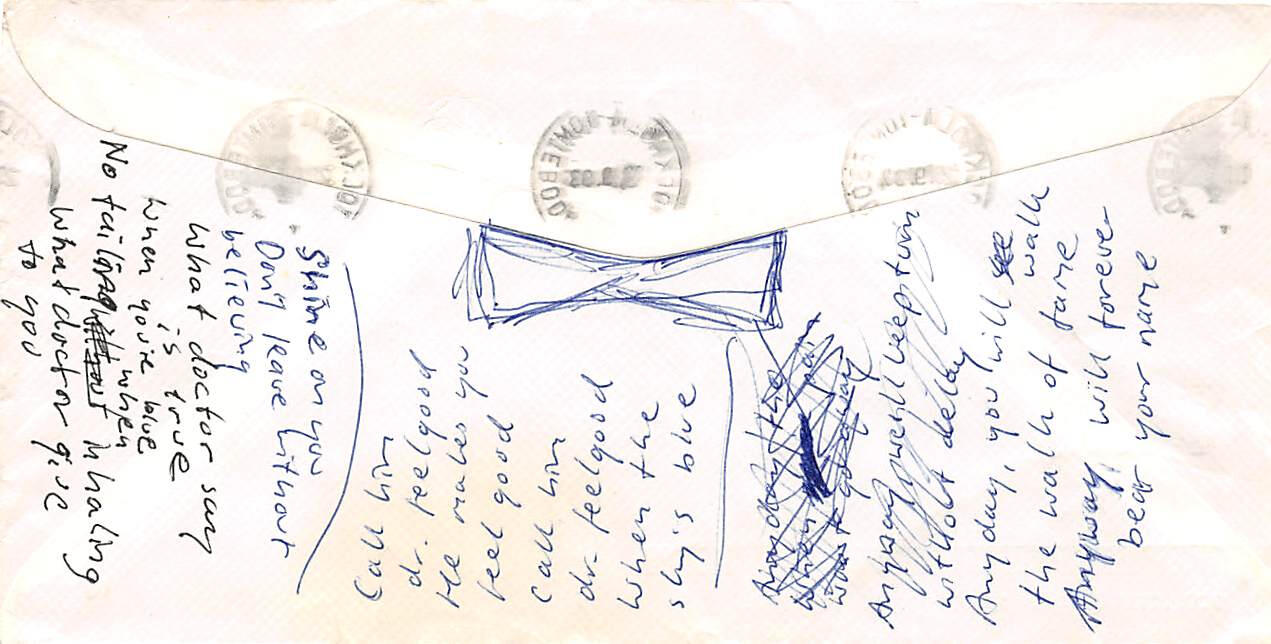 Shine on you
Don't leave hithout
believing
What doctor say
is true
When you're blue
No failing when inhaling
What doctor give
to you
Call him
dr. feelgood
He makes you
feel good
Call him
dr. feelgood
When the
sky's blue
Any day the
when
won't go away
Anyway, we'll keep
without delay
Any day, you will see walk
the walk of fame
Anyway, will forever
bear your name